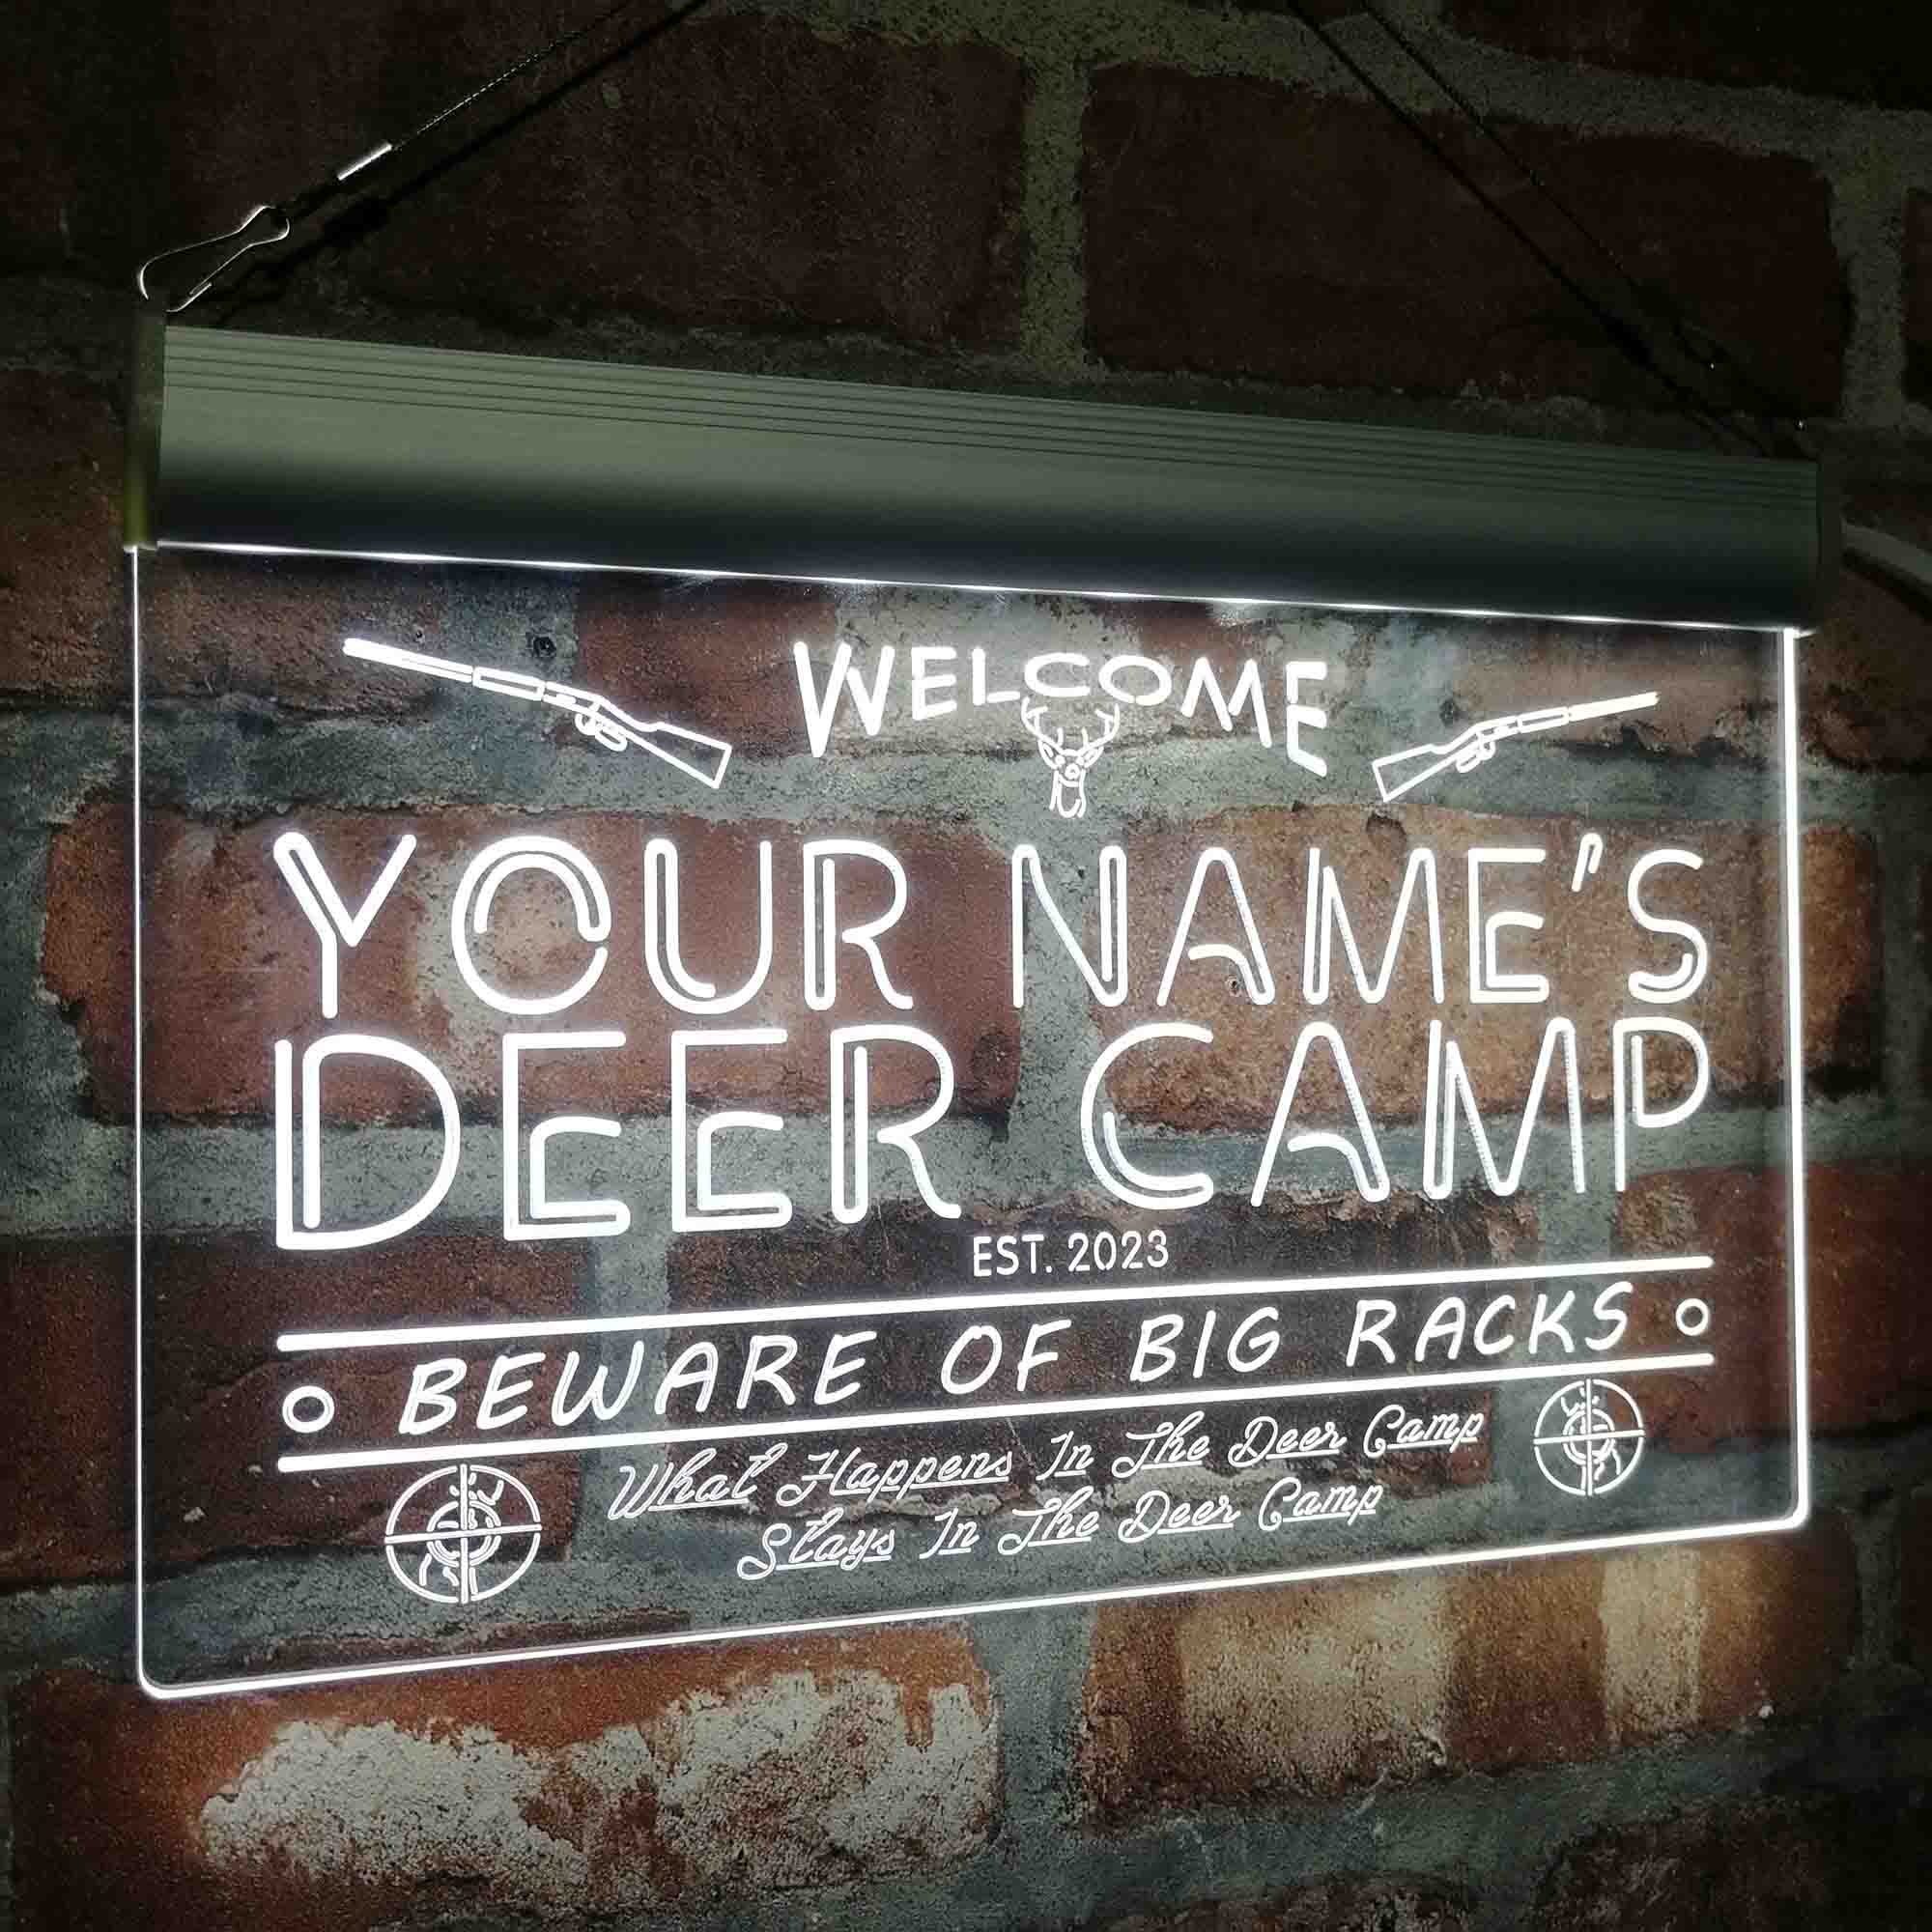 WELCOME
YOUR NAME'S
DEER CAMP
EST. 2023
BEWARE OF BIG RACKS
What Happens In The Deer Camp
Stays In The Deer Camp